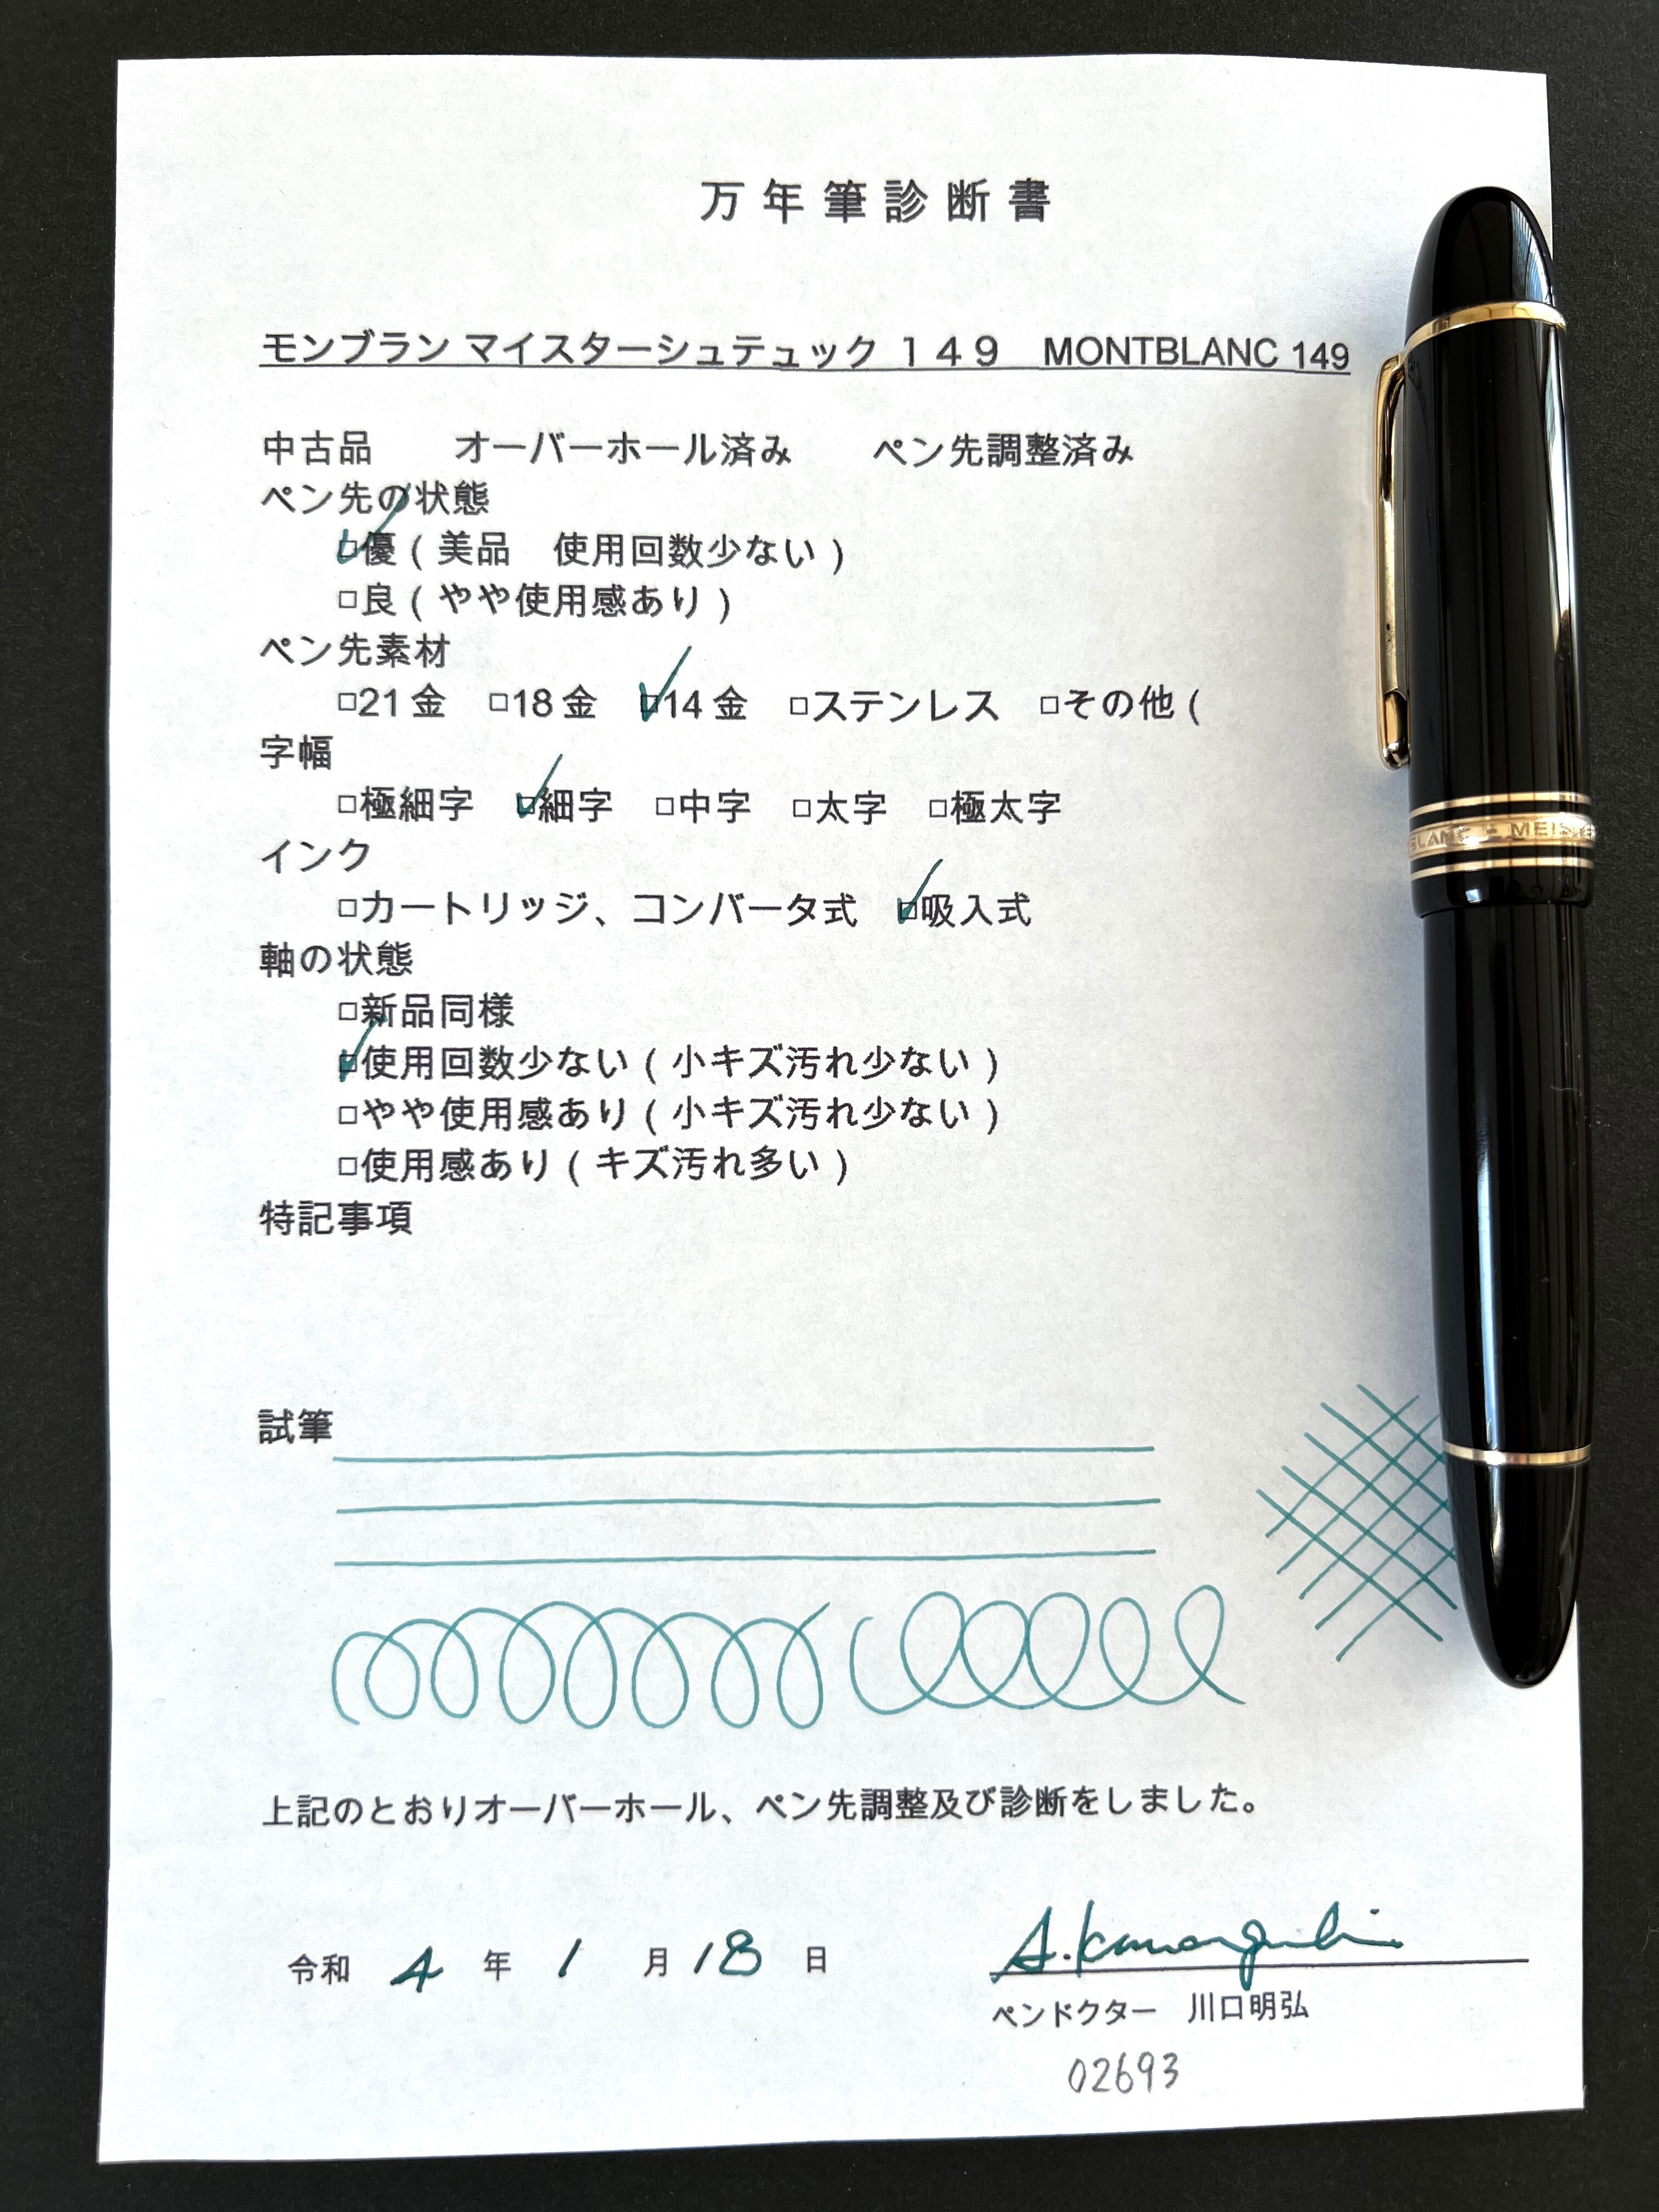 万年筆診断書
モンブラン マイスターシュテュック １４９　MONTBLANC 149
中古品　　オーバーホール済み　　ペン先調整済み
ペン先の状態
□優（美品　使用回数少ない）
□良（やや使用感あり）
ペン先素材
□21金　□18金　□14金　□ステンレス　□その他（
字幅
□極細字　□細字　□中字　□太字　□極太字
インク
□カートリッジ、コンバータ式　□吸入式
軸の状態
□新品同様
□使用回数少ない（小キズ汚れ少ない）
□やや使用感あり（小キズ汚れ少ない）
□使用感あり（キズ汚れ多い）
特記事項
試筆
上記のとおりオーバーホール、ペン先調整及び診断をしました。
令和 4 年 1 月 18 日
A.Kawaguchi
ペンドクター　川口明弘
02693
BLANC - MEIS